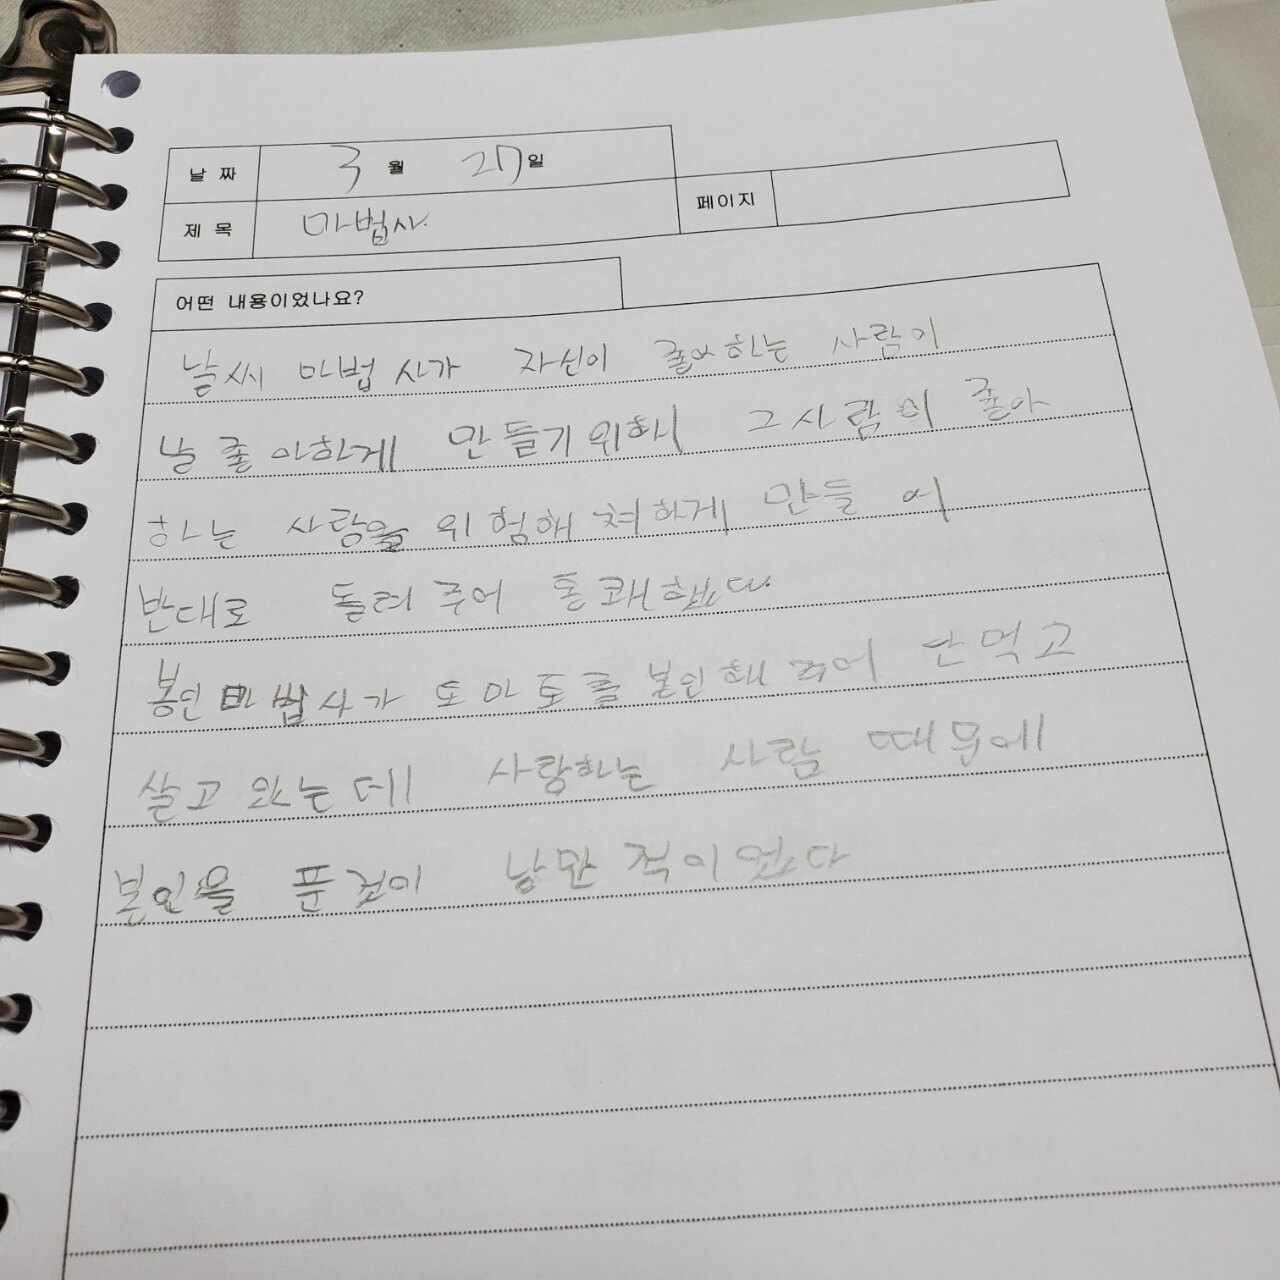 날 짜 3 월 27 일
제 목 마법사. 페이지
어떤 내용이었나요?
날씨 마법사가 자신이 좋아하는 사람이
날 좋아하게 만들기위해 그사람이 좋아
하는 사람을 위험해 쳐하게 만들 어
반대로 돌려 주어 통쾌했다.
봉인 마법사가 토마토를 봉인해 주어 안먹고
살고 있는데 사랑하는 사람 때문에
본인을 푼것이 낭만 적이었다